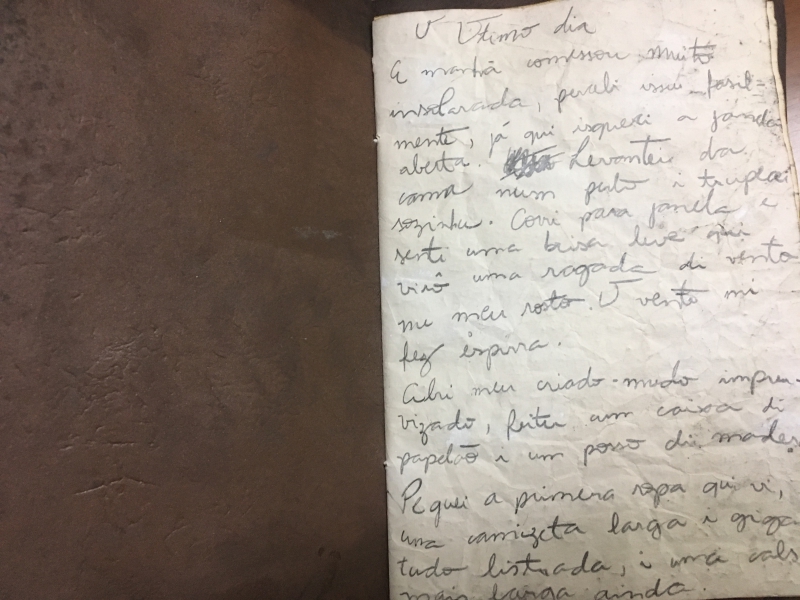 U Utimo dia
E manhã comessou muito
insolarada, pircebi issu fasil-
mente, já qui isqueci a janela
aberta. Levantei da
cama num pulo i trupecei
sozinhu. Corri para janela e
senti uma brisa leve qui
virô uma ragada di vento
nu meu rosto. U vento mi
fez ispirra.
Abri meu criado-mudo impru-
vizado, feitu cum caixa di
papelão i um posso di madei
Peguei a primera ropa qui vi,
uma camizeta larga i giga
tudo listrada, i uma cals
mais larga ainda.